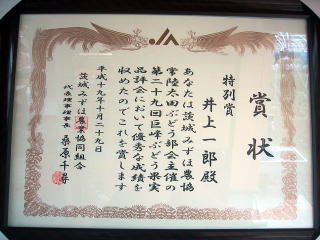 賞状
特別賞
井上一郎殿
あなたは茨城みずほ農協
常陸太田ぶどう部会主催の
第二十九回巨峰ぶどう果実
品評会において優秀な成績を
収めたのでこれを賞します
平成十九年十月二十九日
茨城みずほ農業協同組合
代表理事理事長 桑原千尋